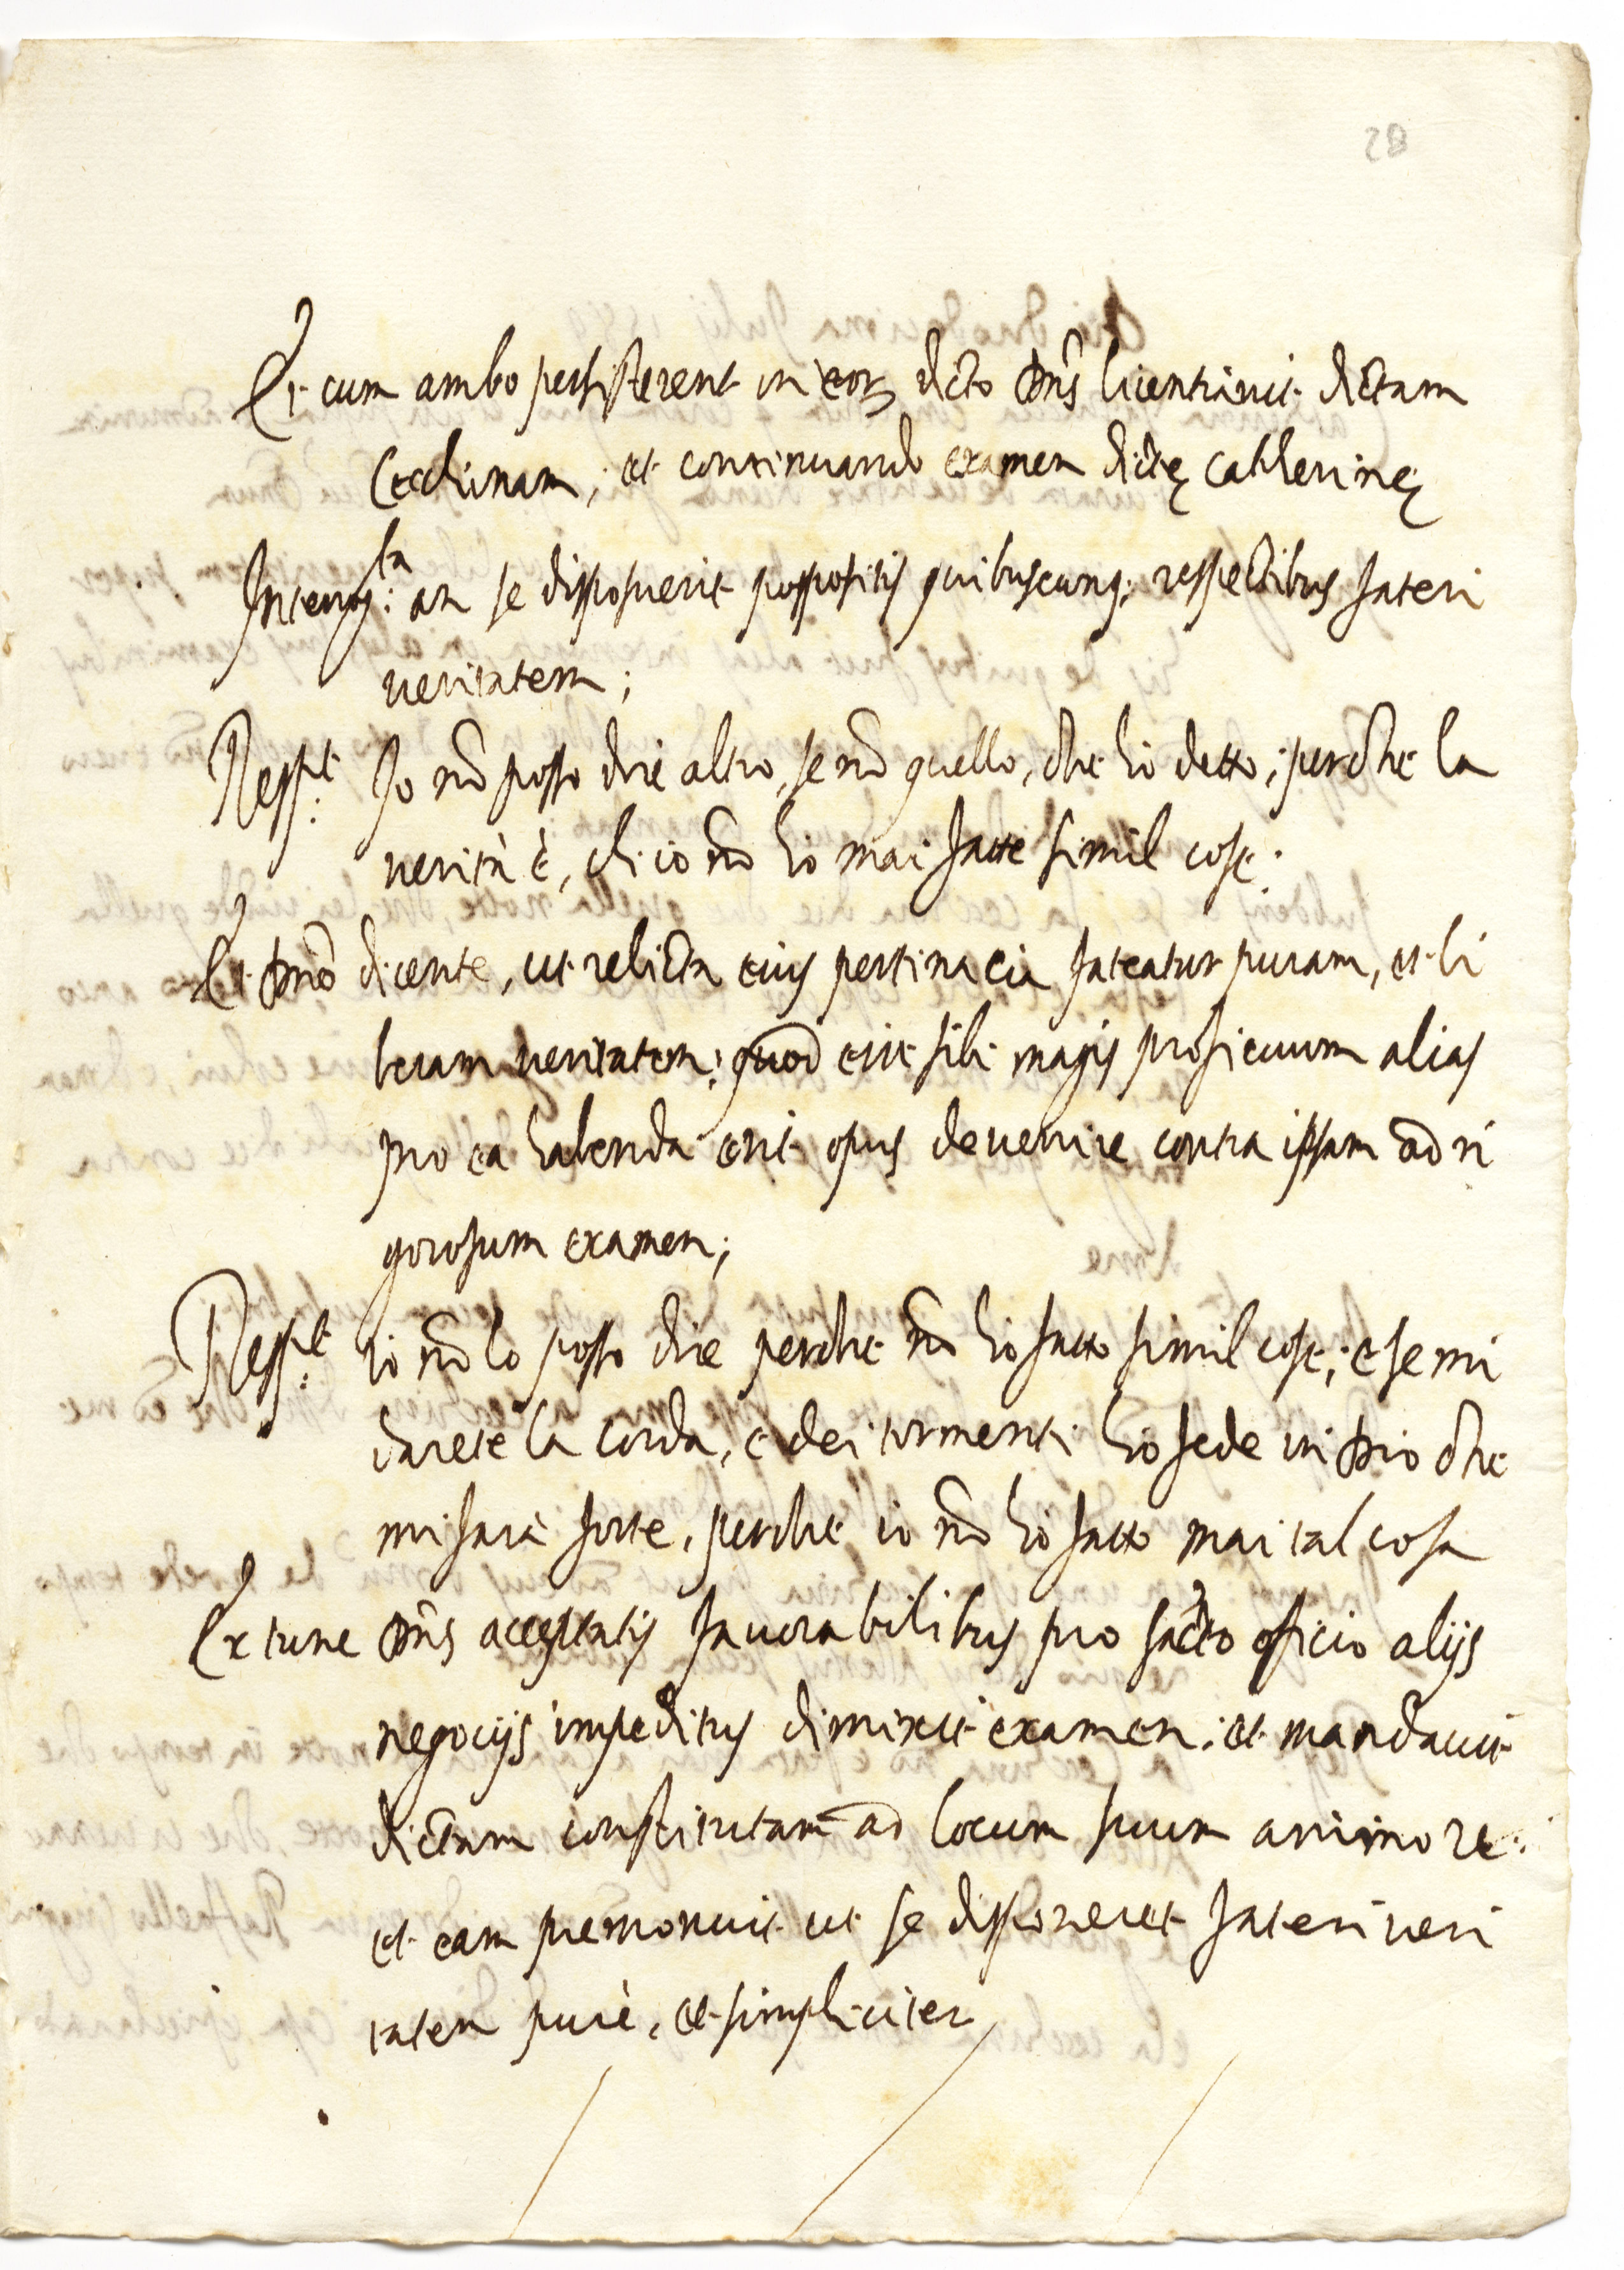 28
Et cum ambo persisterent in eorū dicto Dnūs licentiavit dictam
Cecchinam, et continuando examen dictę Catherinę
Interrog:ta an se disposuerit postpositis quibuscunq; respectibus fateri
veritatem;
Resp:t Io nō posso dire altro, se nō quello, che hò detto; perche la
verità è, ch'io nō hò mai fatte simil cose.
Et Dnō dicente, ut relicta eius pertinacia fateatur puram, et li
beram veritatem; quod erit sibi magis proficuum alias
pro ea habenda erit opus devenire contra ipsam ad ri
gorosum examen;
Resp:t io nō lo posso dire perche nō hò fatto simil cose; e se mi
darete la corda, e dei tormenti hò fede in Dio che
mi farà forte, perche io nō hò fatto mai tal cosa
Ex tunc Dnūs acceptatis favorabilibus pro sācto officio alijs
negocijs impeditus dimixit examen; et mandavit
dictam constitutam ad locum suum animo re:
et eam premonuit ut se disponeret fateri veri
tatem purè, et simpliciter